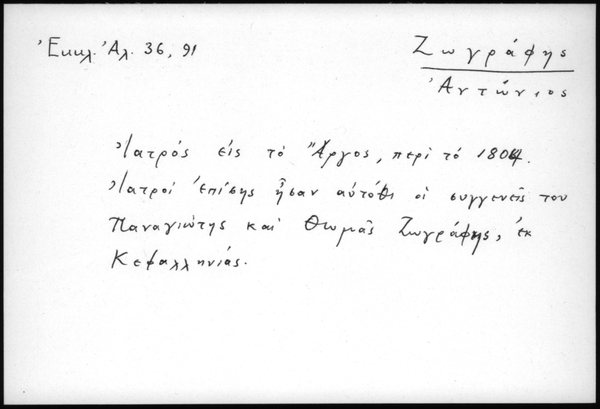 Ἐκκλ. Ἀλ. 36, 91
Ζωγράφης
Ἀντώνιος
Ἰατρός εἰς τό Ἄργος, περί τό 1804.
Ἰατροί ἐπίσης ἦσαν αὐτόθι οἱ συγγενεῖς του
Παναγιώτης καί Θωμᾶς Ζωγράφης, ἐκ
Κεφαλληνίας.